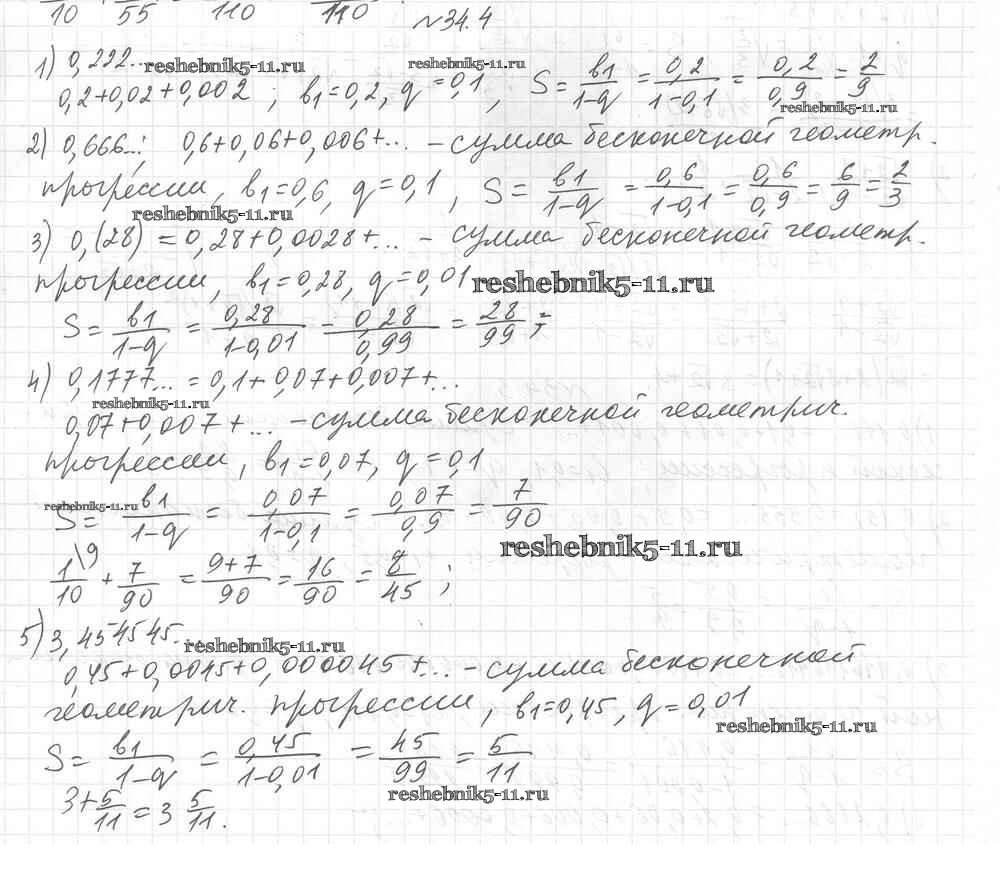 10 55 110 110
№34.4
1) 0,222... reshebnik5-11.ru reshebnik5-11.ru
0,2+0,02+0,002 ; b1=0,2, q=0,1, S = b1/(1-q) = 0,2/(1-0,1) = 0,2/0,9 = 2/9
reshebnik5-11.ru
2) 0,666...; 0,6+0,06+0,006+... – сумма бесконечной геометр.
прогрессии, b1=0,6, q=0,1, S = b1/(1-q) = 0,6/(1-0,1) = 0,6/0,9 = 6/9 = 2/3
reshebnik5-11.ru
3) 0,(28) = 0,28+0,0028+... – сумма бесконечной геометр.
прогрессии, b1=0,28, q=0,01 reshebnik5-11.ru
S = b1/(1-q) = 0,28/(1-0,01) = 0,28/0,99 = 28/99
4) 0,1777... = 0,1+0,07+0,007+...
reshebnik5-11.ru
0,07+0,007+... – сумма бесконечной геометрич.
прогрессии, b1=0,07, q=0,1
reshebnik5-11.ru
S = b1/(1-q) = 0,07/(1-0,1) = 0,07/0,9 = 7/90
reshebnik5-11.ru
1/10 \9 + 7/90 = (9+7)/90 = 16/90 = 8/45 ;
5) 3,454545... reshebnik5-11.ru
0,45+0,0045+0,000045+... – сумма бесконечной
геометрич. прогрессии, b1=0,45, q=0,01
reshebnik5-11.ru
S = b1/(1-q) = 0,45/(1-0,01) = 45/99 = 5/11
reshebnik5-11.ru
3+5/11 = 3 5/11.